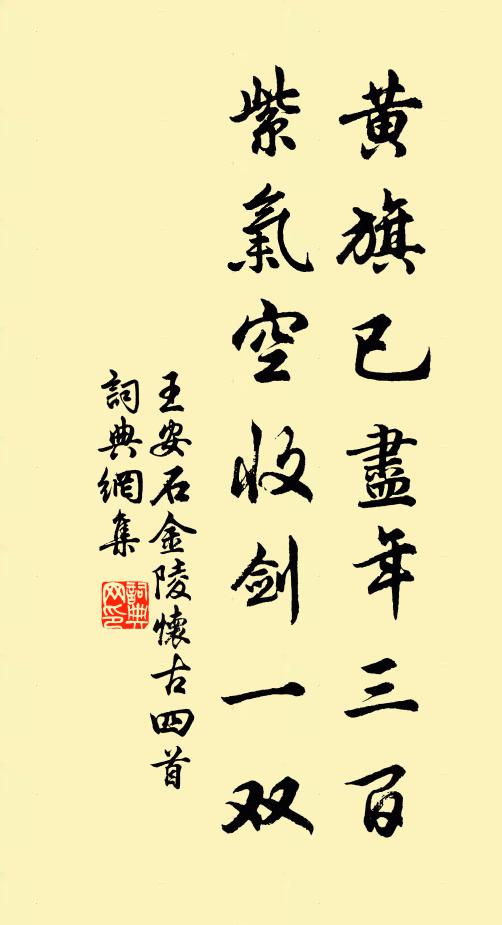 黄旗已盡年三百
紫氣空收劍一双
王安石金陵懷古四首
詞典網集
詞典网印